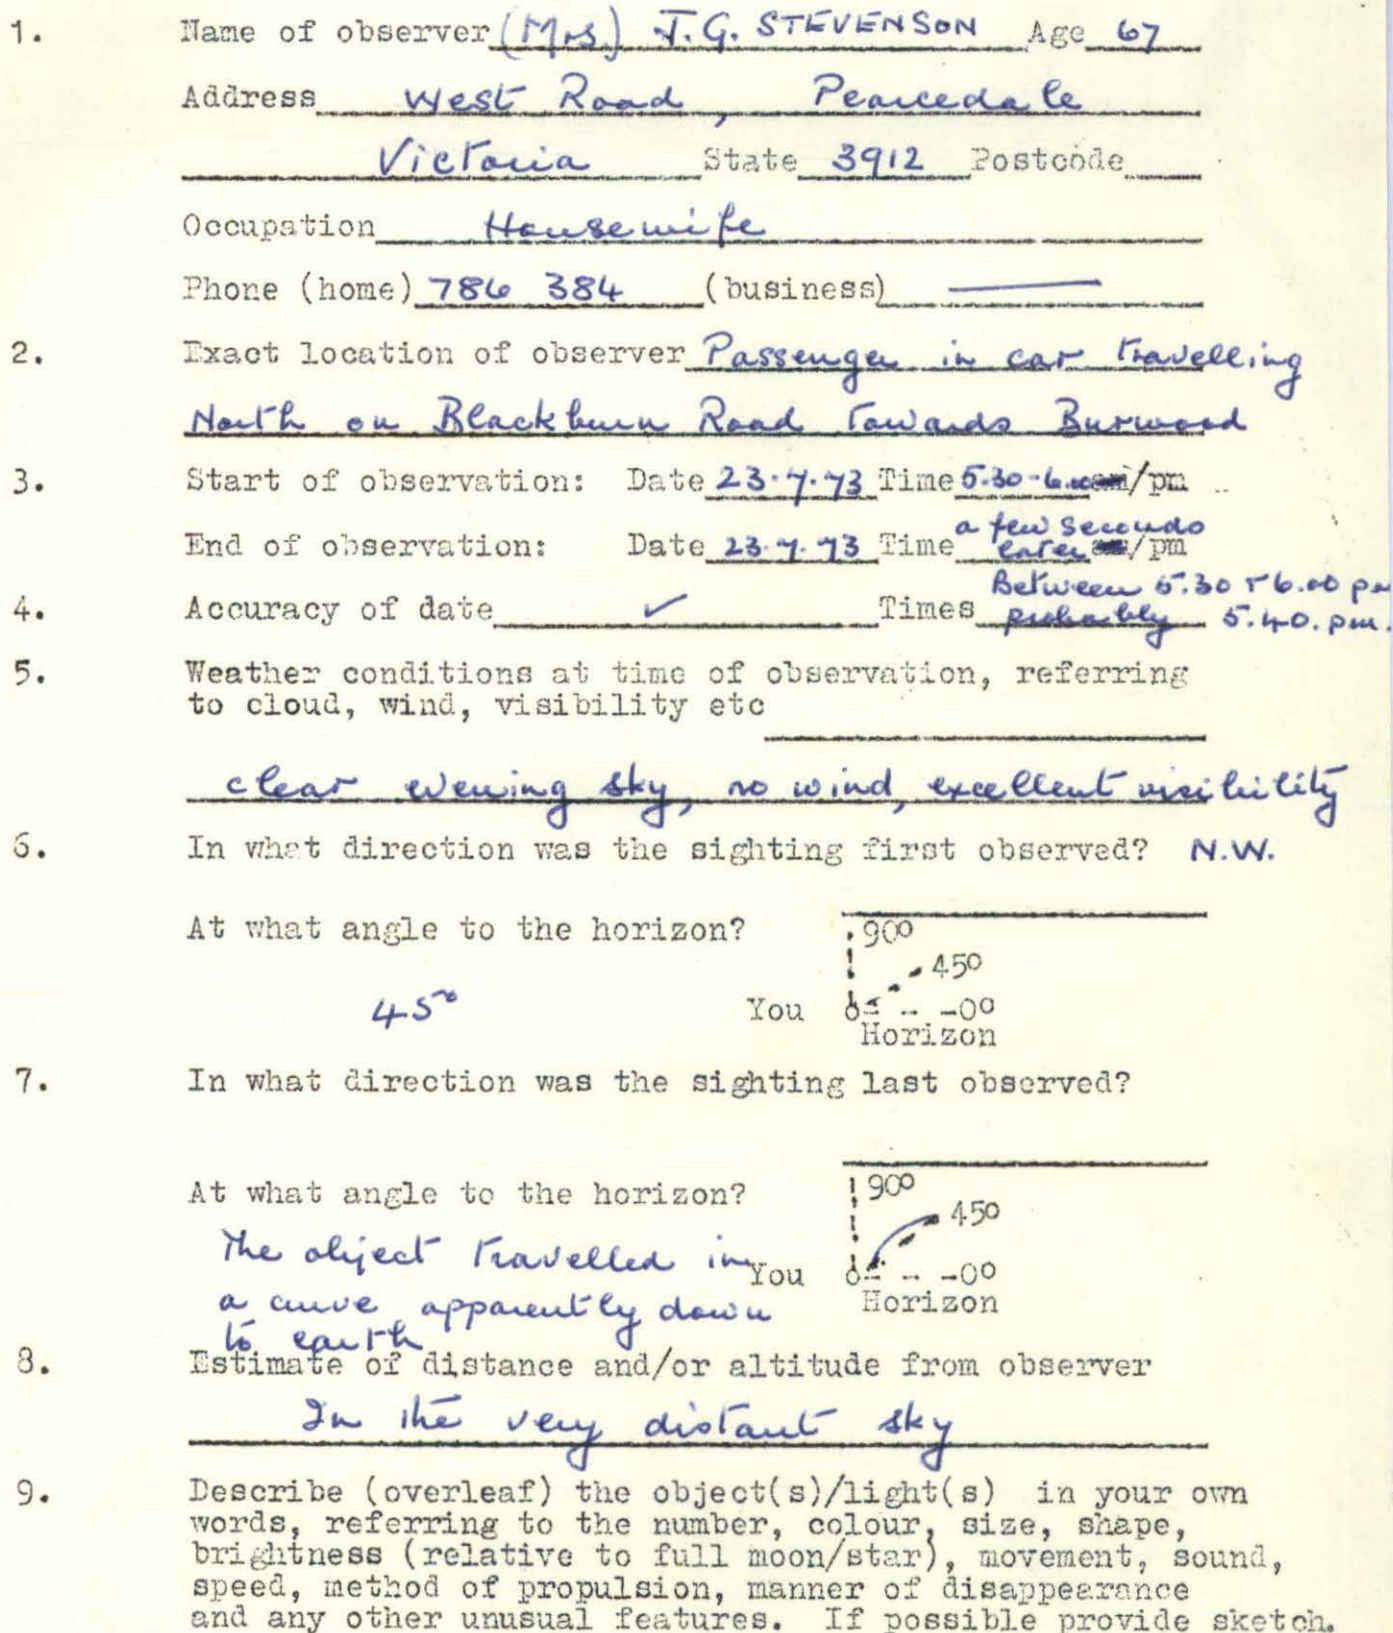 1. Name of observer (Mrs) J.G. STEVENSON Age 67
Address West Road, Pearcedale
Victoria State 3912 Postcode
Occupation Housewife
Phone (home) 786 384 (business) —
2. Exact location of observer Passenger in car travelling
North on Blackburn Road towards Burwood
3. Start of observation: Date 23.7.73 Time 5.30-6.00 /pm
a few seconds
End of observation: Date 23.7.73 Time later /pm
Between 5.30 + 6.00 pm
4. Accuracy of date ✓ Times probably 5.40.pm.
5. Weather conditions at time of observation, referring
to cloud, wind, visibility etc
clear evening sky, no wind, excellent visibility
6. In what direction was the sighting first observed? N.W.
At what angle to the horizon? 90°
45°
45° You 0°
Horizon
7. In what direction was the sighting last observed?
At what angle to the horizon? 90°
45°
The object travelled in You 0°
a curve apparently down Horizon
to earth
8. Estimate of distance and/or altitude from observer
In the very distant sky
9. Describe (overleaf) the object(s)/light(s) in your own
words, referring to the number, colour, size, shape,
brightness (relative to full moon/star), movement, sound,
speed, method of propulsion, manner of disappearance
and any other unusual features. If possible provide sketch.